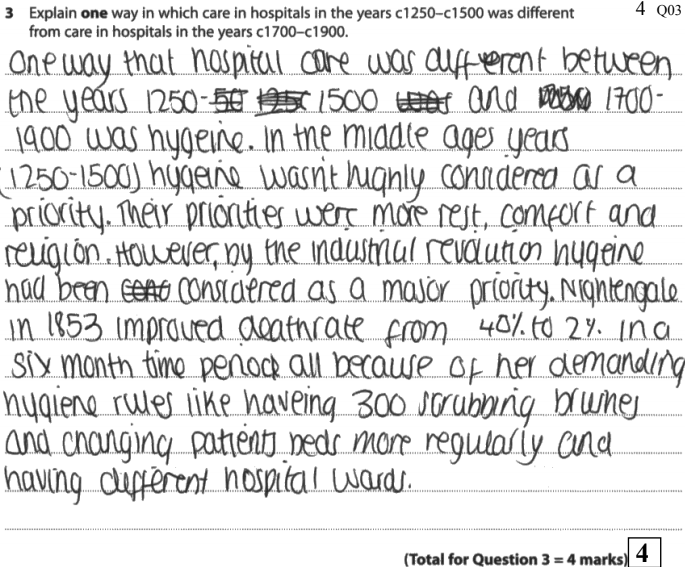 3 Explain one way in which care in hospitals in the years c1250–c1500 was different 4 Q03
from care in hospitals in the years c1700–c1900.
One way that hospital care was different between
the years 1250- 1500 and 1700-
1900 was hygeine. In the middle ages years
(1250-1500) hygeine wasn't highly considered as a
priority. Their priorities were more rest, comfort and
religion. However, by the industrial revolution hygeine
had been considered as a major priority. Nightengale
in 1853 improved deathrate from 40% to 2%. in a
six month time period all because of her demanding
hygiene rules like haveing 300 scrubbing brushes
and changing patients beds more regularly and
having different hospital wards.
(Total for Question 3 = 4 marks) 4